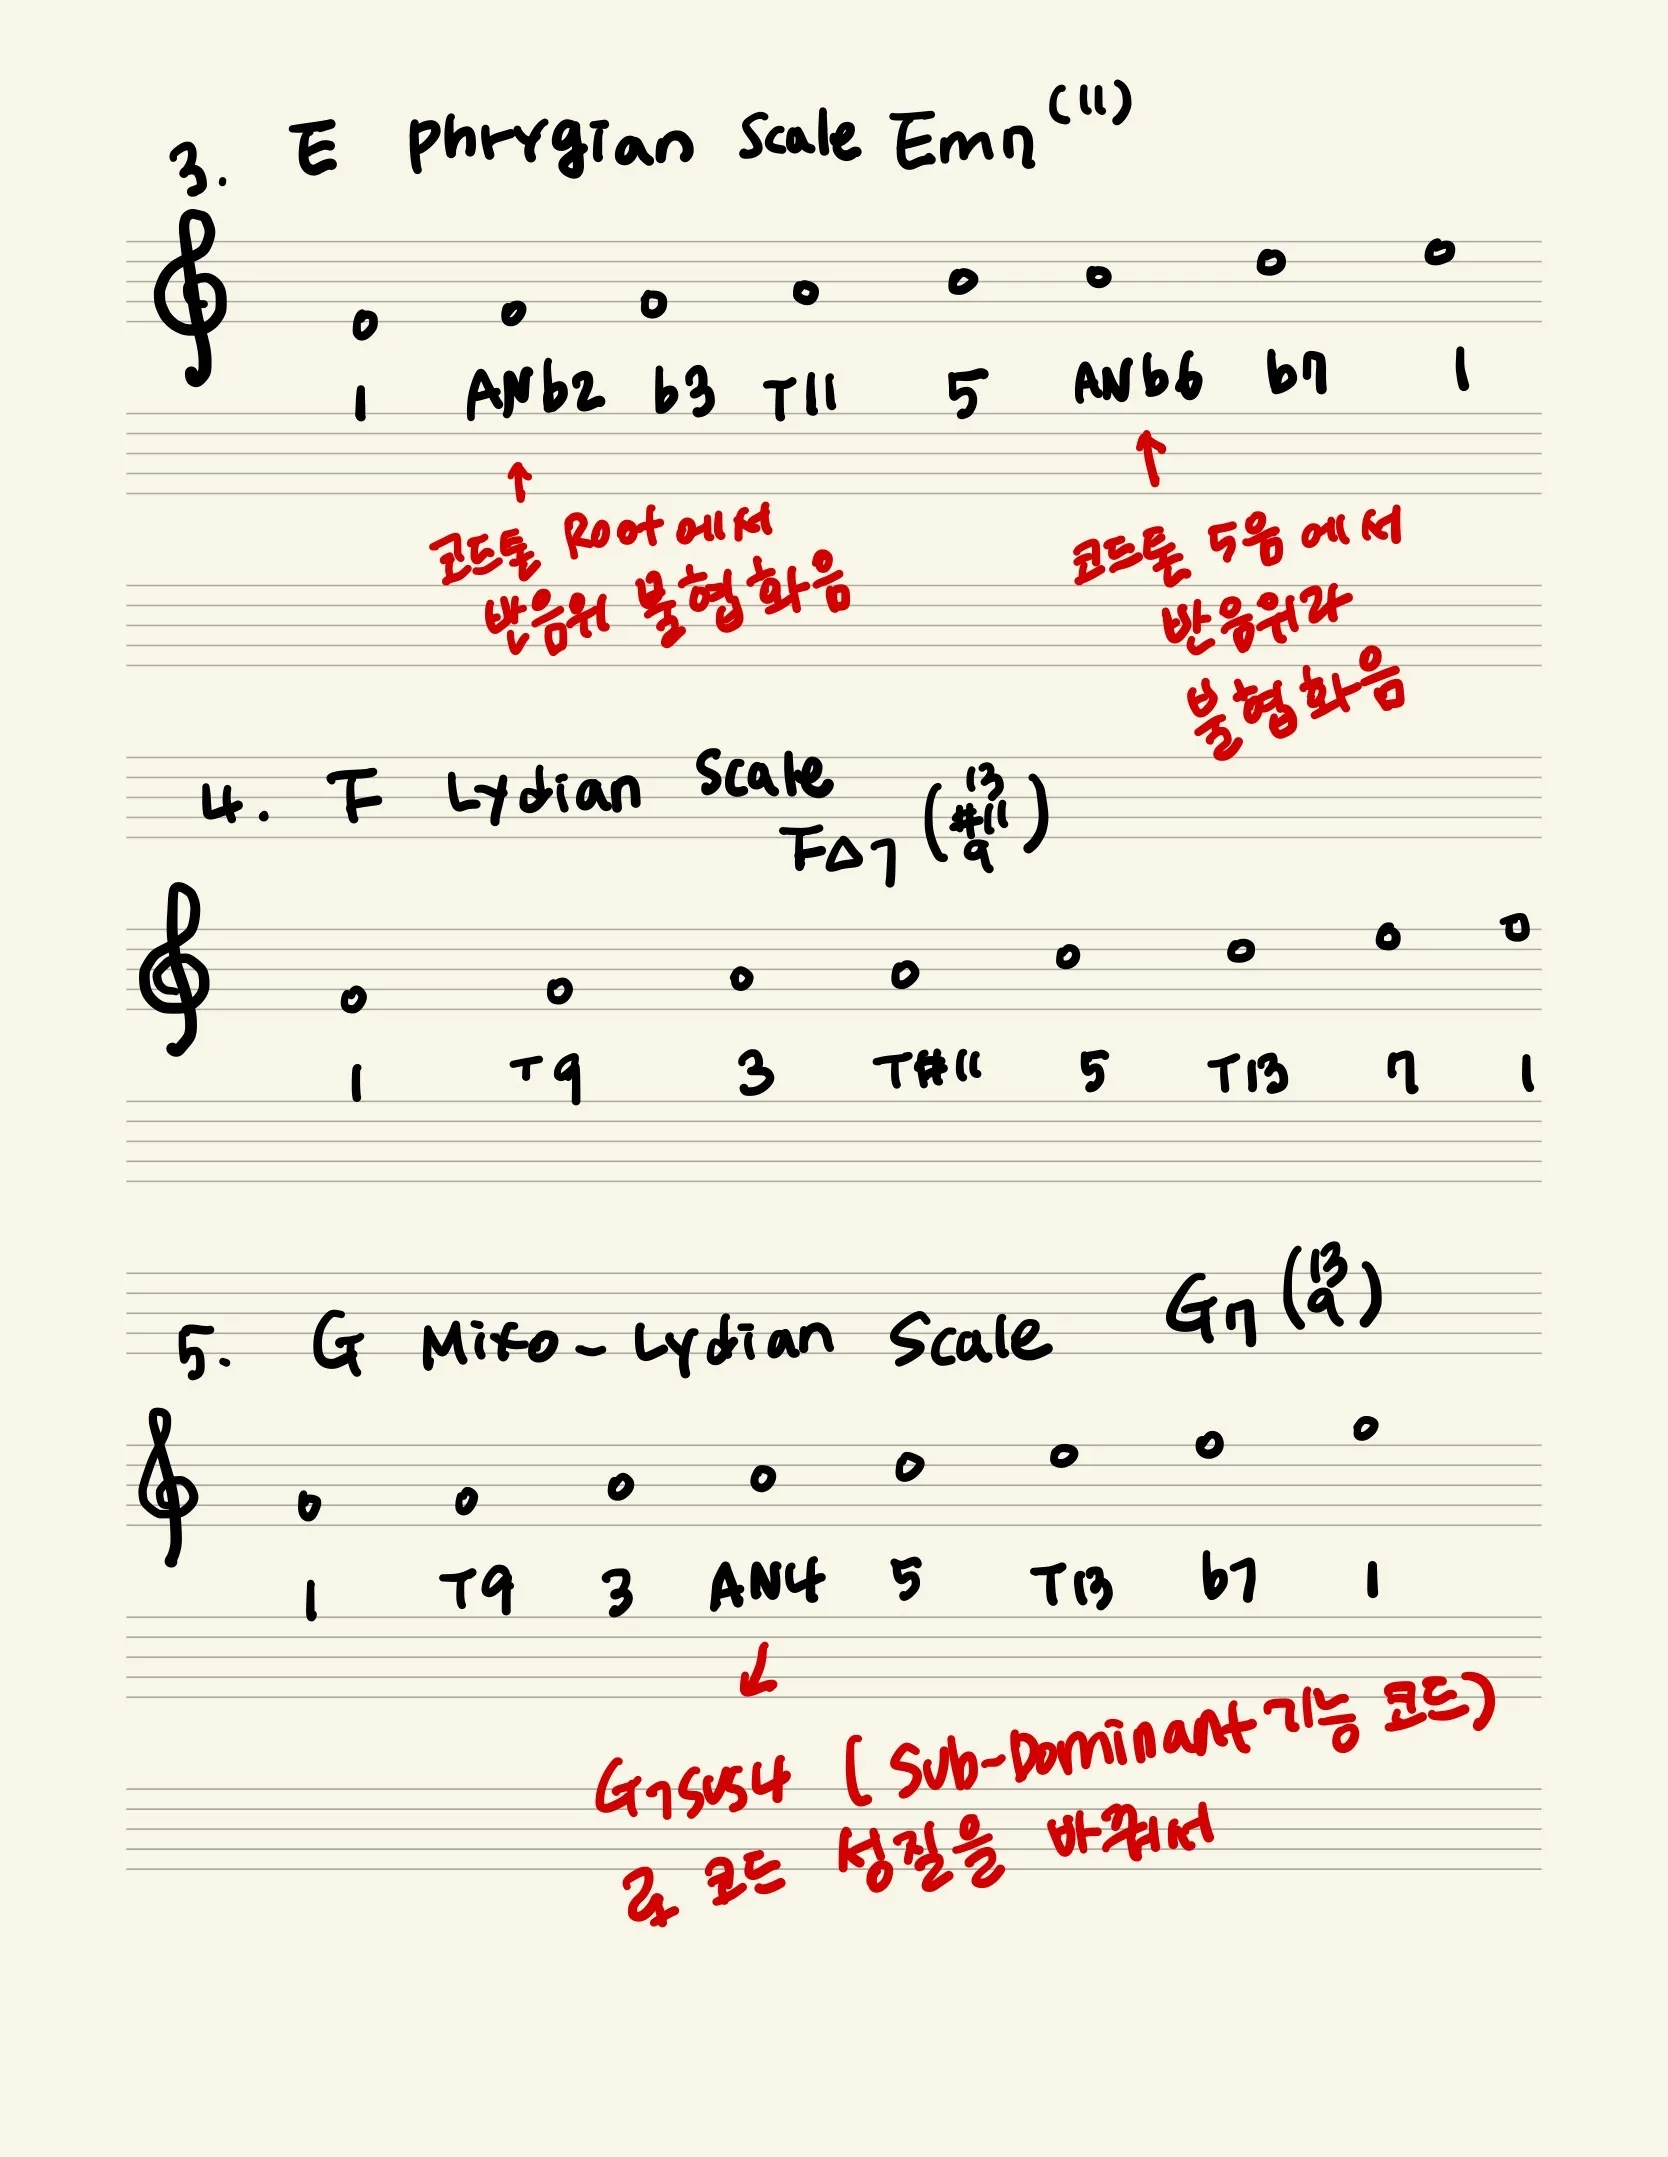 3. E phrygian Scale Em7 (11)
1 ANb2 b3 T11 5 ANb6 b7 1
↑ ↑
코드톤 Root에서
반음위 불협화음
코드톤 5음에서
반음위라
불협화음
4. F Lydian Scale
F△7 (13 #11 9)
1 T9 3 T#11 5 T13 7 1
5. G Mixo-Lydian Scale G7 (13 9)
1 T9 3 AN4 5 T13 b7 1
↙
G7sus4 (Sub-Dominant 기능 코드)
로 코드 성질을 바꿔서